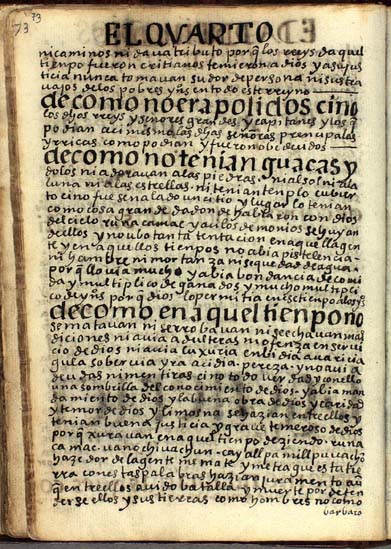 73
73
EL QVARTO
nicaminos ni dava tributo porq̃ los rreys da quel
tienpo fueron cristianos temieron a dios y a su jus
ticia nunca tomavan sudor de persona ni sus tra
vajos de los pobres yn̄s en todo este rreyno
de como no era polidos cino
los dhas rreys y señores grandes y capitanes y los q̃
podian aci mismo las dhas señoras prencipalas
y rricas como podian y fueron obedecidos
de como no tenian guacas y
dolos ni adoravan a las piedras ni al sol ni a la
luna ni a las estrellas ni tenian tenplo cubier
to cino fue señalado un citio y lugar lo tenian
como cosa grande da donde hablaron con dios
del cielo runa camac y aci los demonios se huyan
dellos y no ubo tanta tentacion en aquella gen
te y en aquellos tienpos no abia pistelencia
ni hanbre ni mortanza ni seguedad de agua
porq̃ llovia mucho y abia bondancia de comi
da y multiplico de ganados y mucho multiplic
o de yn̄s porq̃ dios lo permitia en este tienpo
de como en aquel tienpo no
se matavan ni se rrobavan ni se echavan mal
diciones ni avia adulteras ni ofenza en servi
cio de dios ni avia luxuria enbidia avaricia
gula sobervia yra acidia pereza y no avia
deudas ni mentiras cino toda verdad y con ello
una sombrilla del conocimiento de dios y abia man
damiento de dios y la buena obra de dios y caridad
y temor de dios y limosna se hazian entre ellos y
tenian buena justicia y grave temeroso de dios
porq̃ xuravan en aquel tienpo deziendo runa
camac uanochiuachun cay allpa millpuuachun
hazedor de la gente me mate y me traque esta tie
rra con estas palabras hazian juramento aũ
q̃ entre ellos avido batalla y muerte por defen
derse ellos y sus tierras como hombres no como
barbaro